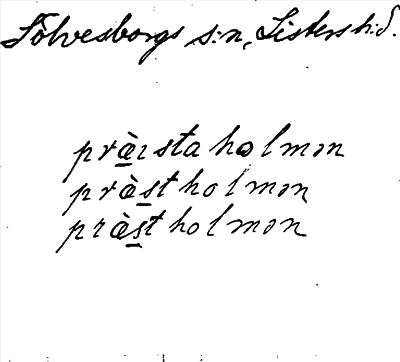 Sölvesborgs s:n, Listers h:d.
præ̀ısta holmən
præ̀s̲t holmən
præ̀s̲t holmən